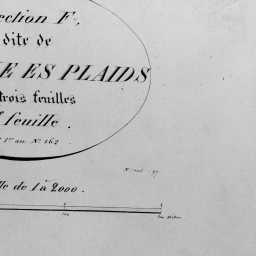 ection F,
dite de
E ES PLAIDS
trois feuilles
feuille.
1er au No. 162
lle de 1 à 2000.